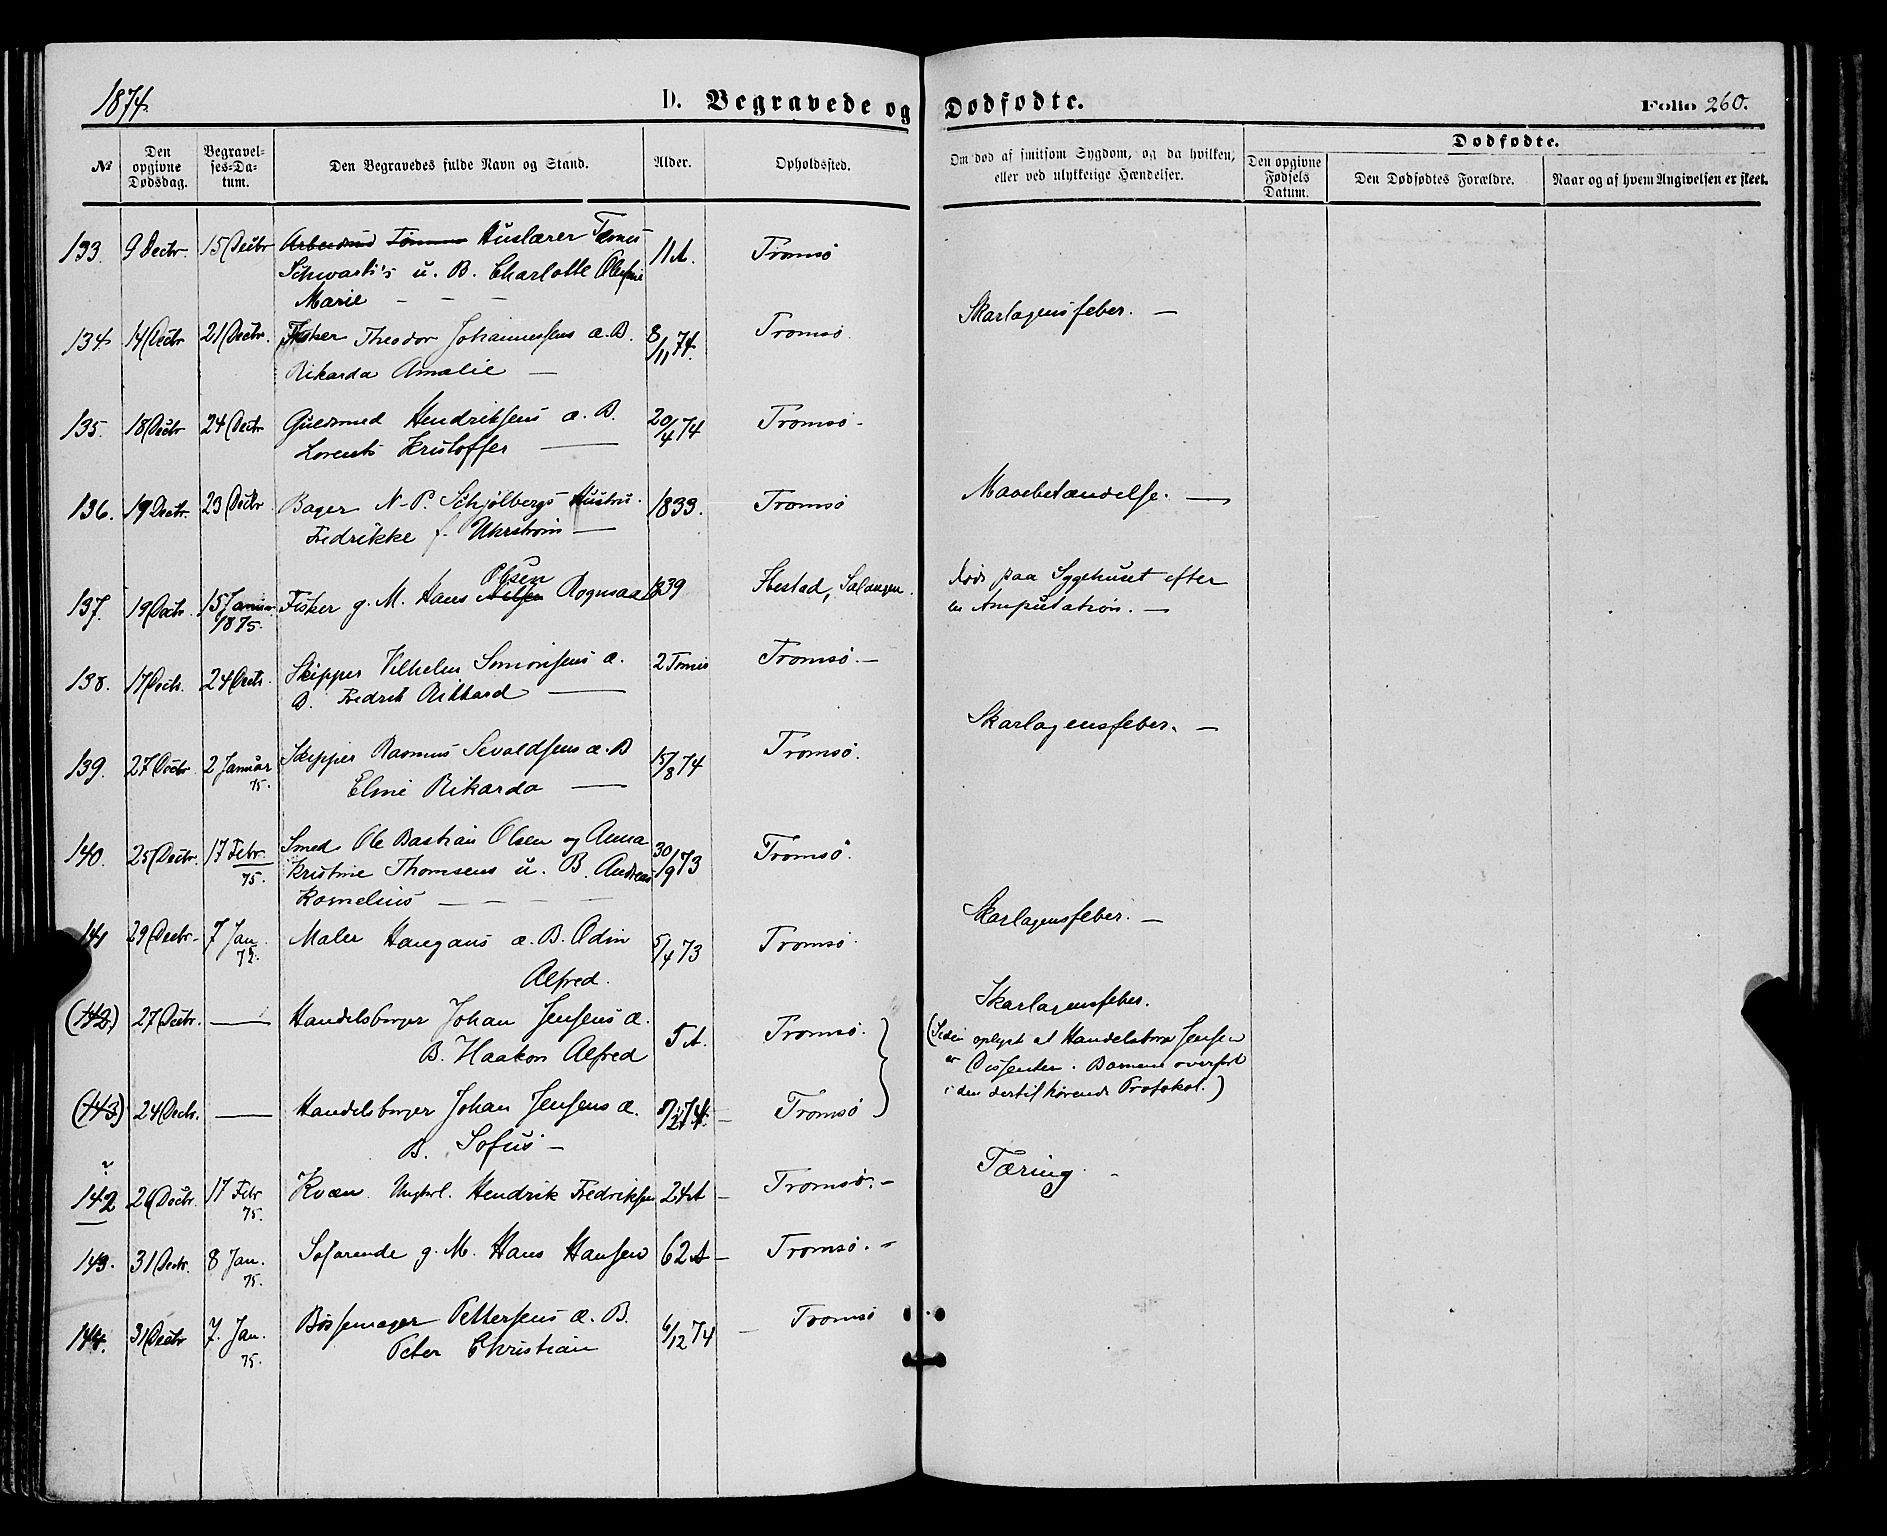 1874.
D. Begravede og Dødfødte.
Folio 260.
№
Den opgivne Dødsdag.
Begravelses-Datum.
Den Begravedes fulde Navn og Stand.
Alder.
Opholdssted.
Om død af smitsom Sygdom, og da hvilken,
eller ved ulykkelige Hændelser.
Dødfødte.
Den opgivne Fødsels Datum.
Den Dødfødtes Forældre.
Naar og af hvem Angivelsen er skeet.
133. 9 Decbr. 15 Decbr Huslærer 11 A. Tromsø
u. B. Charlotte
Marie — — —
Skarlagensfeber. —
134 14 Decbr 21 Decbr. Fisker Theodor Johannessens æ. B. 8/11 74. Tromsø.
Rikarda Amalie —
135. 18 Decbr 24 Decbr Guldsmed Hendriksens æ. B. 20/4 74 Tromsø -
Lorents Kristoffer —
Mavebetændelse. —
136. 19 Decbr. 23 Decbr Bager N. P. Schjølbergs Hustru 1833. Tromsø
Fredrikke f. Uhrstrøm —
Olsen
137. 19 Decbr. 15 Januar Fisker g. M. Hans Nilsen Rognsaa 1839 Salangen.
1875.
død paa Sygehuset efter
en Amputation. —
138. 17 Decbr. 24 Decbr. Skipper Vilhelm Simonsens æ. 2 Tromsø. —
B. Fredrik Rikhard —
Skarlagensfeber. —
139. 27 Decbr 2 Januar Skipper Rasmus Sevaldsens æ. B 15/8 74 Tromsø.
75. Eline Rikarda —
140. 25 Decbr. 17 Febr. Smed Ole Bastian Olsen og Anna 30/9 73 Tromsø.
75. Kristine Thomsens u. B. Andreas
Kornelius — — — —
Skarlagensfeber. —
141 29 Decbr - 7 Jan. Maler Haugans æ. B. Odin 5/4 73 Tromsø.
75. Alfred.
Skarlagensfeber.
(142.) 27 Decbr. — Handelsborger Johan Jensens æ. 5 A. Tromsø.
B. Haakon Alfred
(Siden oplyst at Handelsborg Jensen
er Dissenter. Børnene overført
i den dertil hørende Protokol.)
(143) 24 Decbr. — Handelsborger Johan Jensens æ. 74. — Tromsø
B. Sofus —
Tæring. -
142 26 Decbr. 17 Febr Kvæn Ungkrl. Hendrik Fredriksen 24 A — Tromsø. —
75.
143. 31 Decbr. 8 Jan. Søfarende g. M. Hans Hansen 62 A — Tromsø. —
75.
144. 31 Decbr 7. Jan. Bøssemager Pettersens æ. B. 6/12 74 — Tromsø
75. Peter Christian